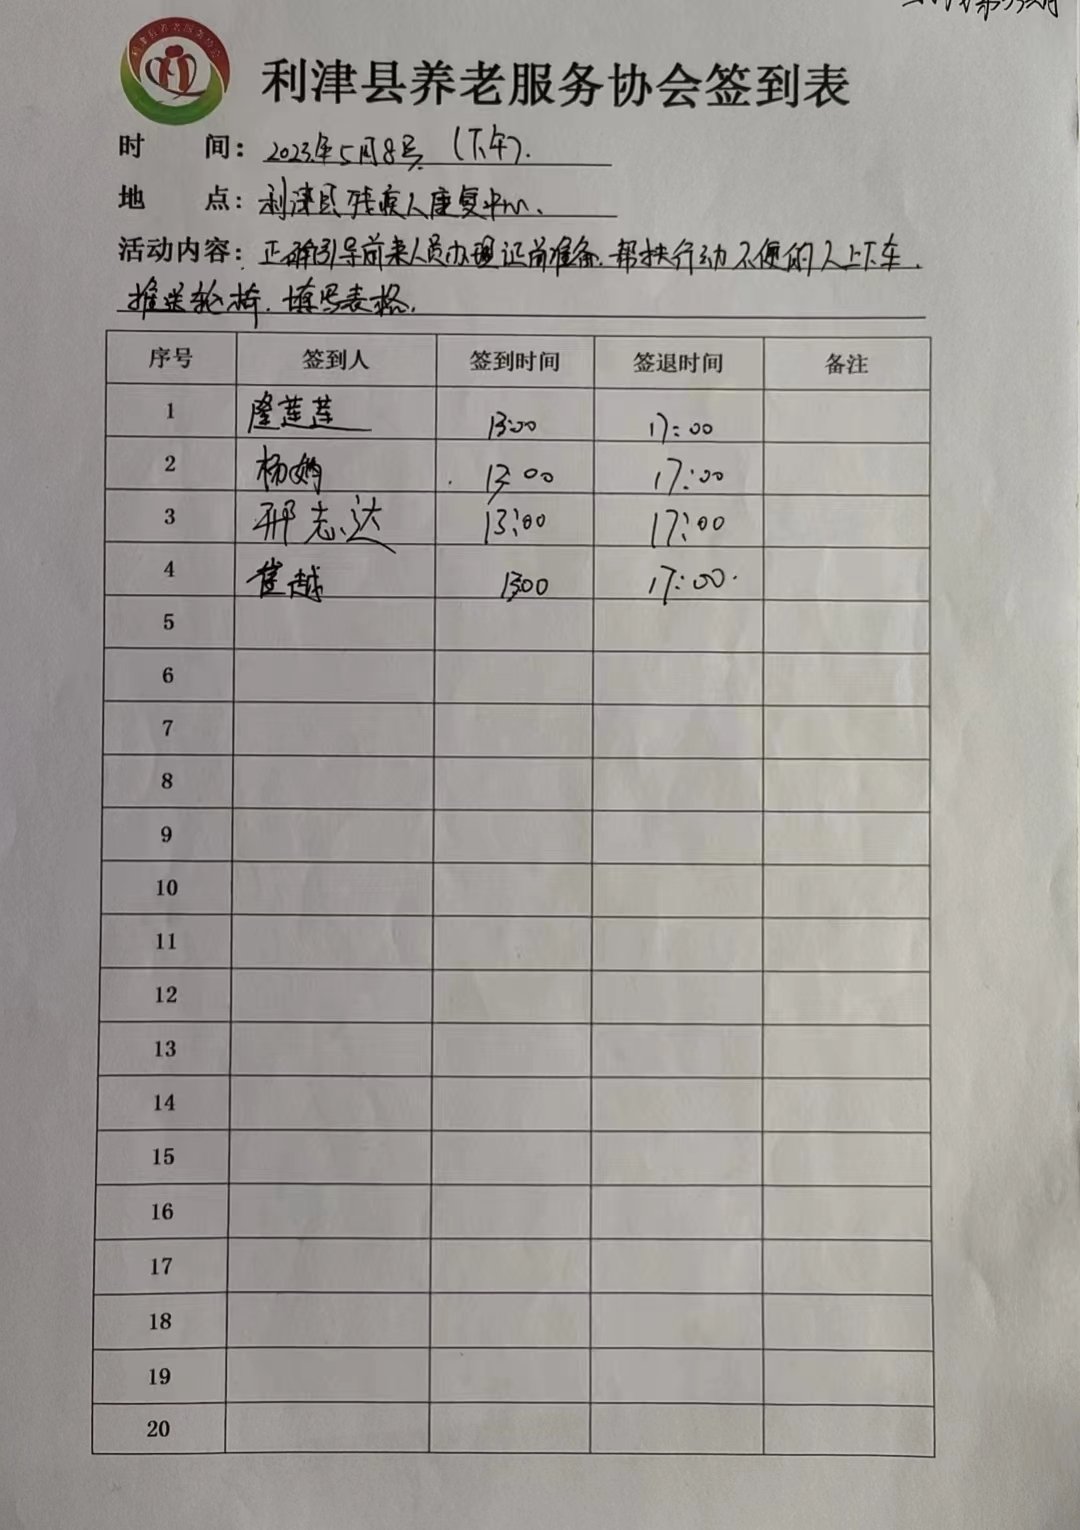 利津县养老服务协会签到表
时 间：2023年5月8号（下午）.
地 点：利津县残疾人康复中心、
活动内容：正确引导前来人员办理证前准备.帮扶行动不便的人上下车.
推送轮椅.填写表格.
序号 签到人 签到时间 签退时间 备注
1 隆莲莲 13:00 17:00
2 杨娉 13:00 17:00
3 邢志达 13:00 17:00
4 崔越 1300 17:00.
5
6
7
8
9
10
11
12
13
14
15
16
17
18
19
20